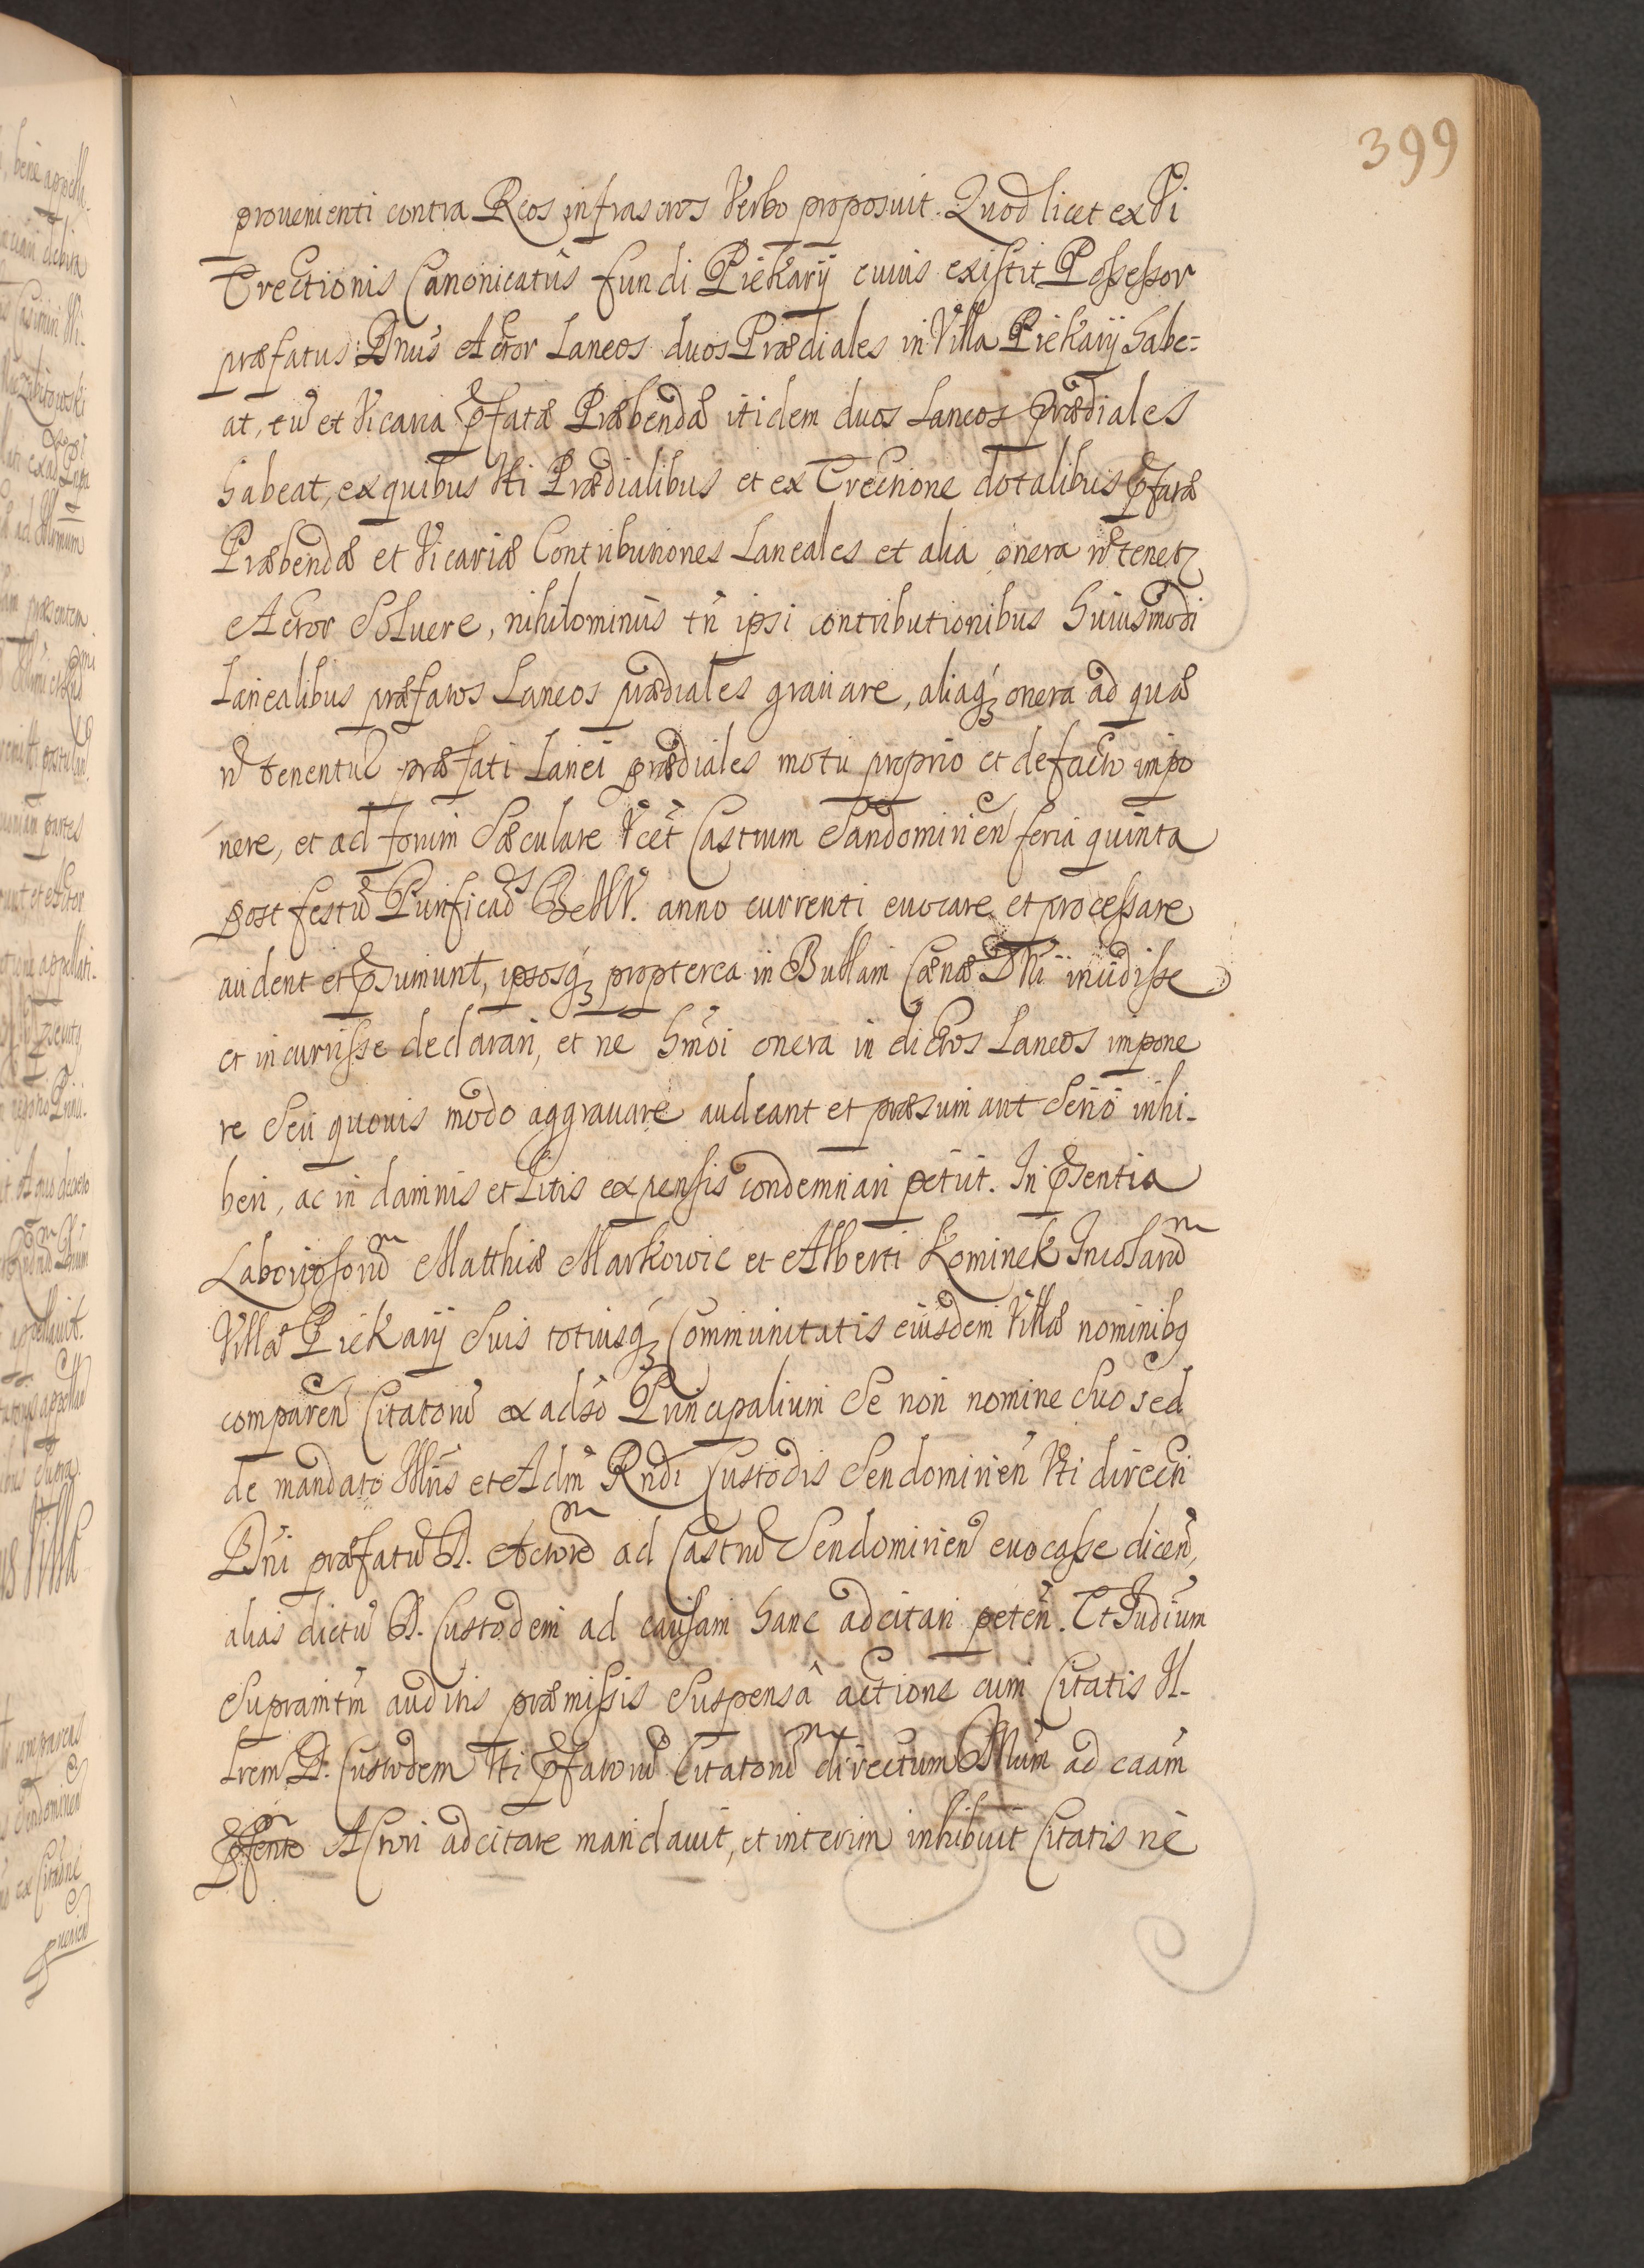 399
prouenienti contra Reos infrascros Verbo proposuit. Quod licet ex Vi
Erectionis Canonicatus fundi Piekary cuius existit Possessor
præfatus Dnus Actor Laneos duos Prædiales in Villa Piekary habe-
at, tū et Vicaria pfatæ Præbendæ itidem duos Laneos Prædiales
habeat, ex quibus Vti Prædialibus et ex Erectione dotalibus pfatæ
Præbendæ et Vicariæ Contributiones Laneales et alia onera n̄ tenetz
Actor Soluere, nihilominus tn̄ ipsi contributionibus huiusmodi
Lanealibus præfatos Laneos prædiales grauare, aliaq3 onera ad quæ
n̄ tenentur præfati Lanei prædiales motu proprio et de facto impo
nere, et ad forum Sæculare Vcet Castrum Sandomirien feria quinta
post festū Purificaō BeMV. anno currenti euocare et processare
audent et psumunt, ipsosq3 propterea in Bullam Cænæ Dni incidisse
et incurrisse declarari, et ne hmōi onera in dictos Laneos impone
re Seu quouis modo aggrauare audeant et præsumant Serio inhi-
beri, ac in damnis et Litis expensis condemnari petiit. In psentia
Laboriosorū Matthiæ Markowic et Alberti Kominek Incolarū
Villæ Piekary Suis totiusq3 Communitatis eiusdem Villæ nominibq
comparen Citatorū ex adso Principalium Se non nomine Suo sed
de mandato Illris et Adm Rndi Custodis Sendomirien Vti directi
Dni præfatū D. Actorē ad Castrū Sendomirien euocasse dicen,
alias dictū D. Custodem ad causam hanc adcitari peten. Et Judium
Supramtm auditis præmissis Suspensâ actione cum Citatis Il-
lrem D. Custodem Vti pfatorū Citatorū directum Dnum ad caam
psente Actori adcitare mandauit, et interim inhibuit Citatis ne